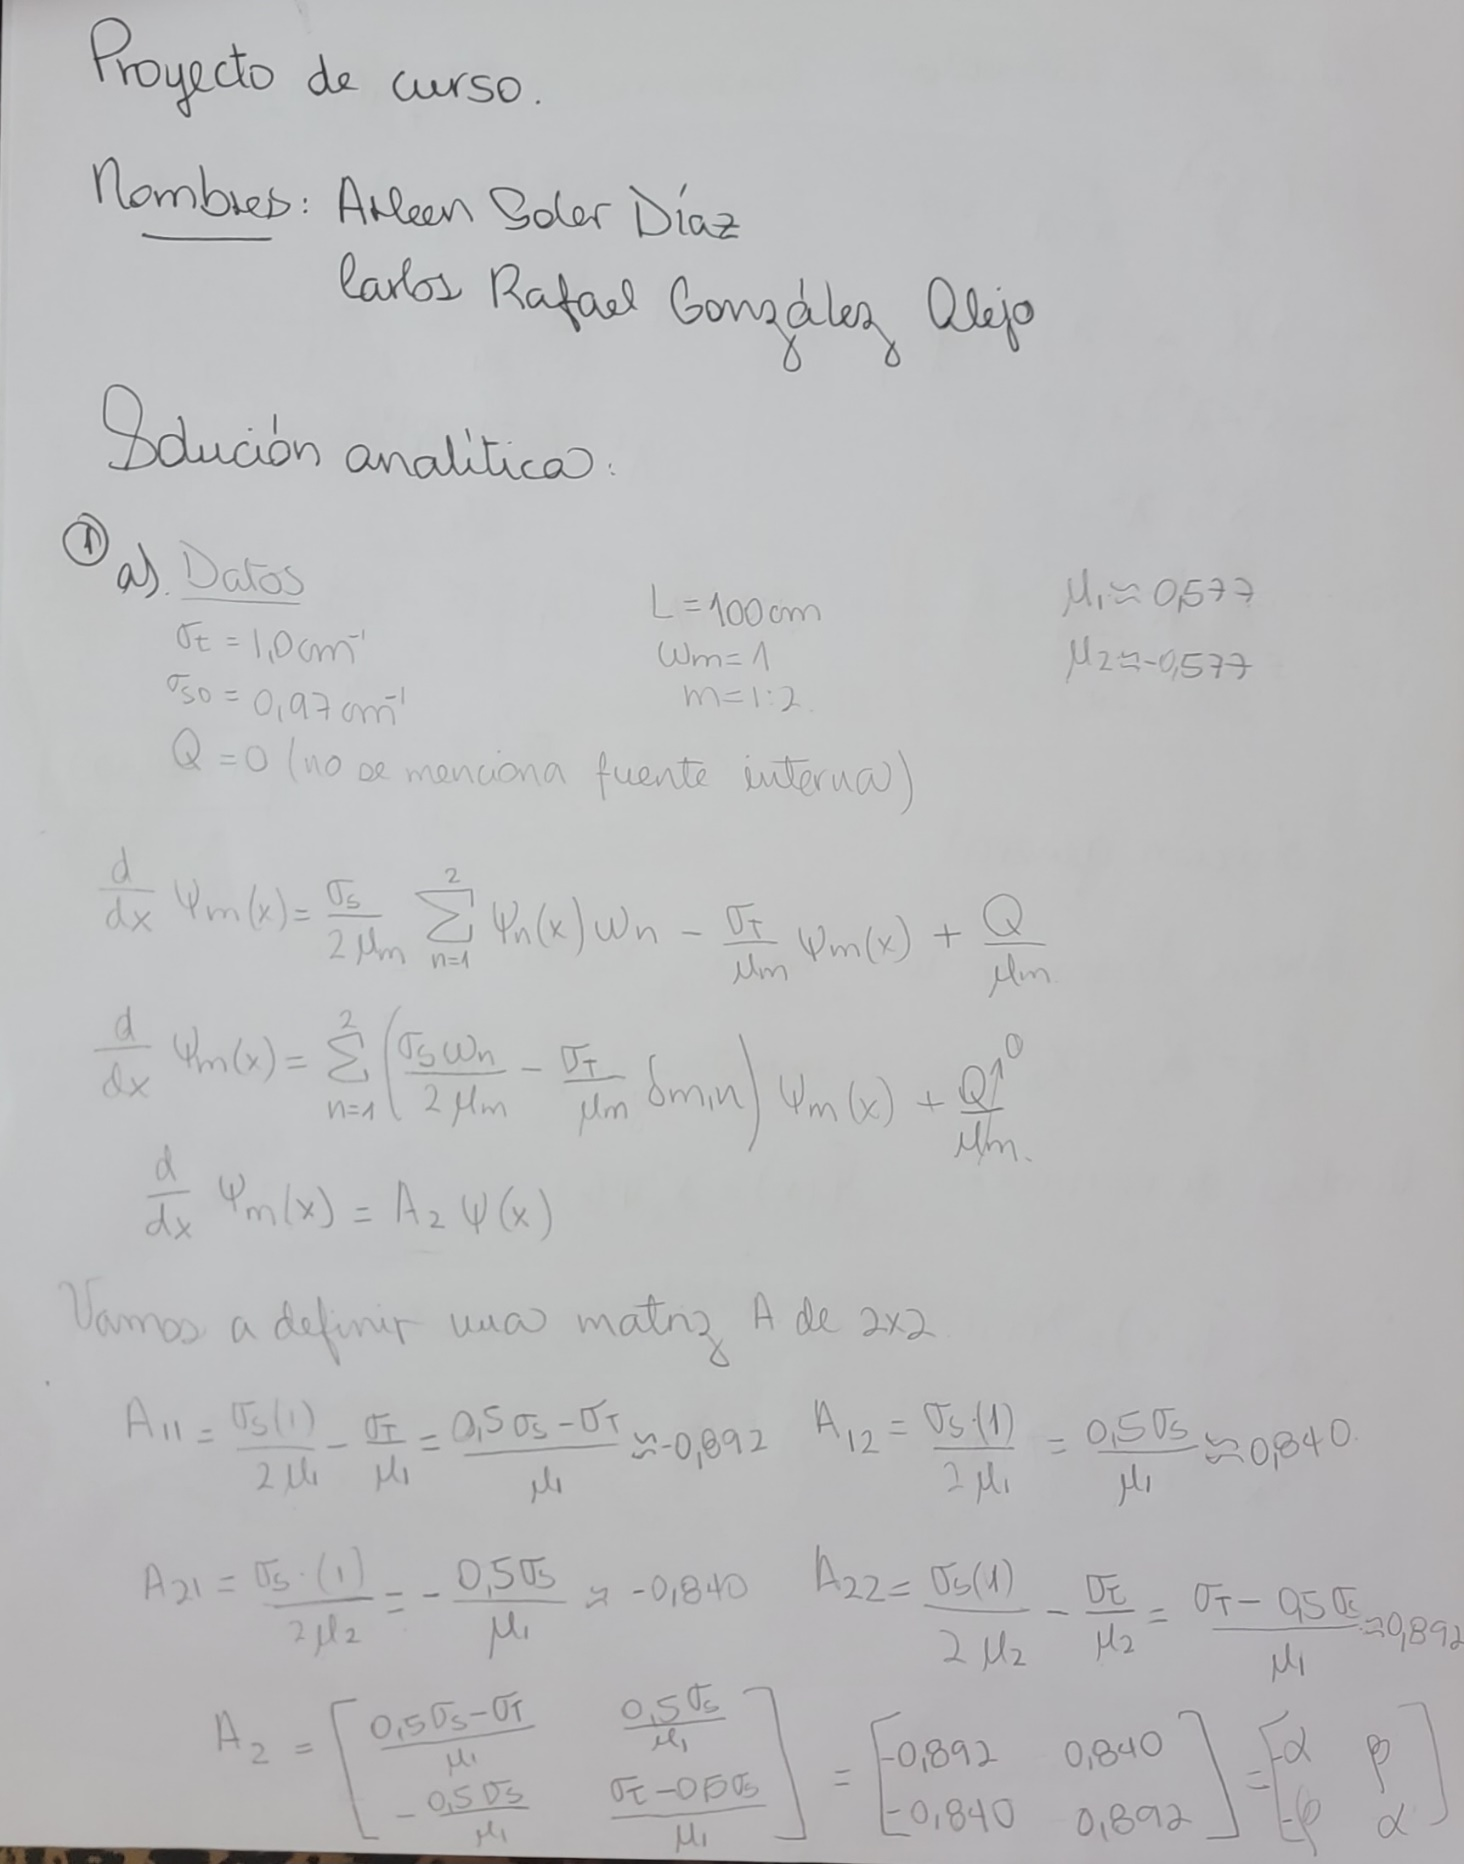 Proyecto de curso.
Nombres: Arleen Soler Díaz
Carlos Rafael González Alejo
Solución analítica:
① a). Datos
σt = 1,0 cm⁻¹ L = 100 cm μ₁ ≈ 0,577
σs0 = 0,97 cm⁻¹ ωm = 1 μ₂ ≈ -0,577
m = 1:2.
Q = 0 (no se menciona fuente interna)
d/dx Ψm(x) = σs/2μm ∑_{n=1}^{2} Ψn(x) ωn - σT/μm Ψm(x) + Q/μm.
d/dx Ψm(x) = ∑_{n=1}^{2} (σs ωn/2μm - σT/μm δm,n) Ψm(x) + Q/μm. ↑0
d/dx Ψm(x) = A₂ Ψ(x)
Vamos a definir una matriz A de 2x2
A₁₁ = σs(1)/2μ₁ - σT/μ₁ = 0,5σs - σT/μ₁ ≈ -0,892 A₁₂ = σs·(1)/2μ₁ = 0,5σs/μ₁ ≈ 0,840.
A₂₁ = σs·(1)/2μ₂ = - 0,5σs/μ₁ ≈ -0,840 A₂₂ = σs(1)/2μ₂ - σt/μ₂ = σT - 0,5σs/μ₁ ≈ 0,892
A₂ = [0,5σs-σT/μ₁ 0,5σs/μ₁ ; -0,5σs/μ₁ σt-0,5σs/μ₁] = [-0,892 0,840 ; -0,840 0,892] = [-α β ; -β α]